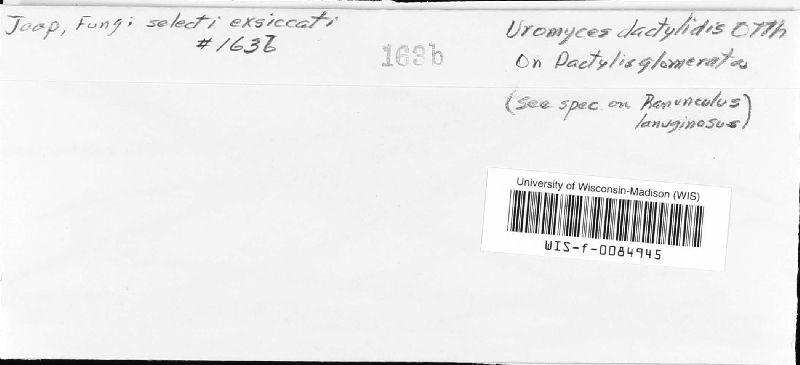 Jaap, Fungi selecti exsiccati
#163b
163b
Uromyces dactylidis OTTH
On Dactylis glomerata
(see spec. on Ranunculus
lanuginosus)
University of Wisconsin-Madison (WIS)
WIS-f-0084945